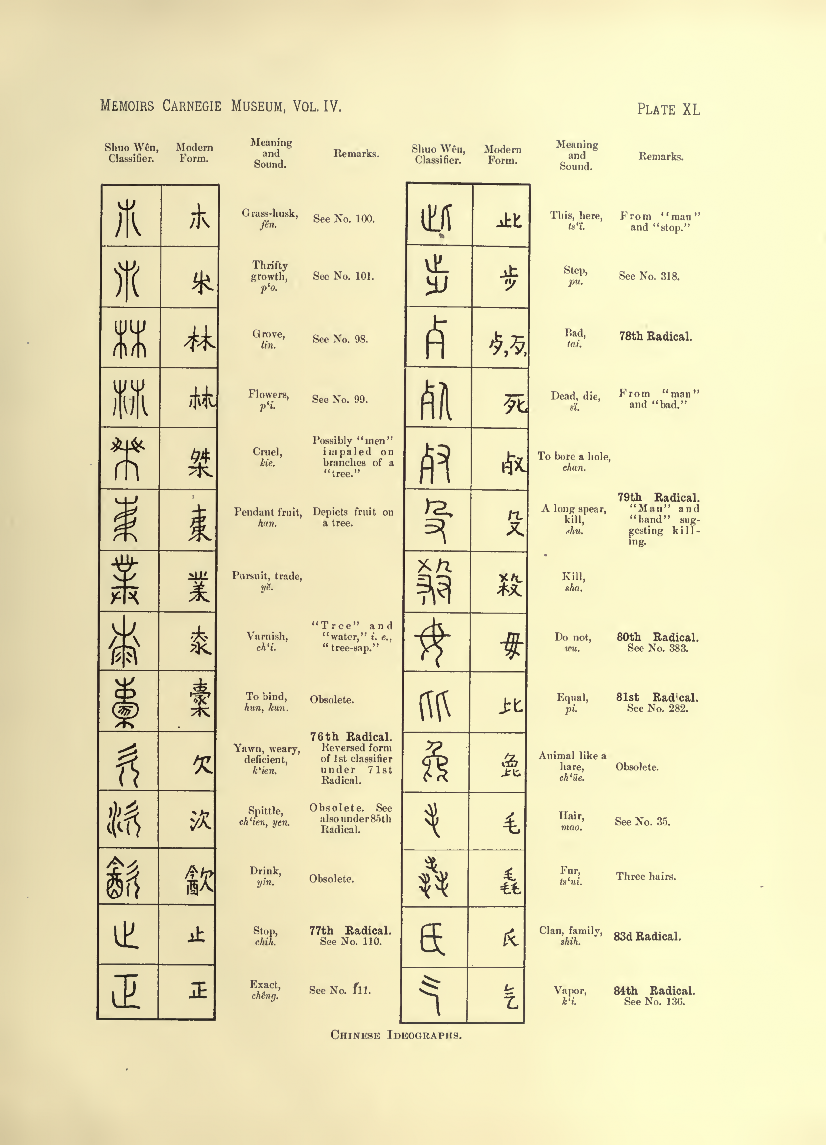 MEMOIRS CARNEGIE MUSEUM, VOL. IV.
PLATE XL
Shuo Wên, Classifier.
Modern Form.
Meaning and Sound.
Remarks.
Shuo Wên, Classifier.
Modern Form.
Meaning and Sound.
Remarks.
Grass-husk,
fên.
See No. 100.
Thrifty
growth,
p‘o.
See No. 101.
林
Grove,
lin.
See No. 98.
Flowers,
p‘i.
See No. 99.
桀
Cruel,
kie.
Possibly “men”
impaled on
branches of a
“tree.”
Pendant fruit,
han.
Depicts fruit on
a tree.
業
Pursuit, trade,
yĕ.
Varnish,
ch‘i.
“Tree” and
“water,” i. e.,
“tree-sap.”
To bind,
hun, kun.
Obsolete.
欠
Yawn, weary,
deficient,
k‘ien.
76th Radical.
Reversed form
of 1st classifier
under 71st
Radical.
次
Spittle,
ch‘ien, yen.
Obsolete. See
also under 85th
Radical.
Drink,
yin.
Obsolete.
止
Stop,
chih.
77th Radical.
See No. 110.
正
Exact,
chêng.
See No. 111.
此
This, here,
ts‘ï.
From “man”
and “stop.”
步
Step,
pu.
See No. 318.
歺,歹,
Bad,
tai.
78th Radical.
死
Dead, die,
sï.
From “man”
and “bad.”
To bore a hole,
chan.
殳
A long spear,
kill,
shu.
79th Radical.
“Man” and
“hand” sug-
gesting kill-
ing.
殺
Kill,
sha.
毋
Do not,
wu.
80th Radical.
See No. 383.
比
Equal,
pi.
81st Radical.
See No. 282.
Animal like a
hare,
ch‘üe.
Obsolete.
毛
Hair,
mao.
See No. 35.
毳
Fur,
ts‘ui.
Three hairs.
氏
Clan, family,
shih.
83d Radical.
气
Vapor,
k‘i.
84th Radical.
See No. 136.
CHINESE IDEOGRAPHS.